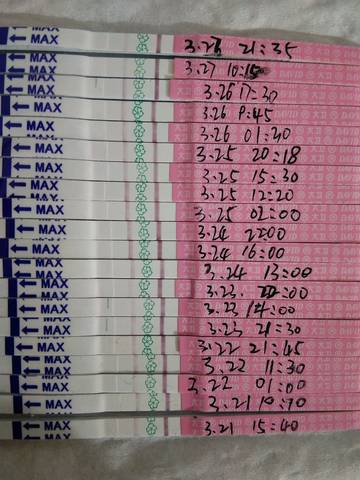 ← MAX 3.26 21:35
← MAX 3.27 10:15
← MAX 3.26 17:30
← MAX 3.26 9:45
← MAX 3.26 01:20
← MAX 3.25 20:18
← MAX 3.25 15:30
← MAX 3.25 12:20
← MAX 3.25 02:00
← MAX 3.24 22:00
← MAX 3.24 16:00
← MAX 3.24 13:00
← MAX 3.23. :00
← MAX 3.23 14:00
← MAX 3.23 21:30
← MAX 3.22 21:45
← MAX 3.22 11:30
← MAX 3.22 01:00
← MAX 3.21
← MAX 3.21 15:40